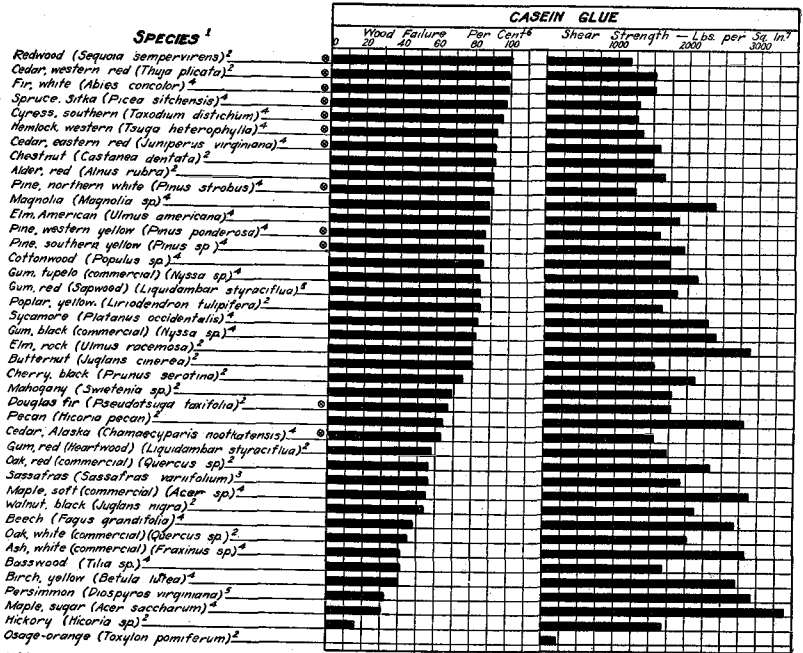 CASEIN GLUE
SPECIES 1
Wood Failure Per Cent 6
Shear Strength — Lbs. per Sq. In. 7
0 20 40 60 80 100
1000 2000 3000
Redwood (Sequoia sempervirens) 2
Cedar, western red (Thuja plicata) 2
Fir, white (Abies concolor) 4
Spruce. Sitka (Picea sitchensis) 4
Cyress, southern (Taxodium distichum) 4
Hemlock, western (Tsuga heterophylla) 4
Cedar, eastern red (Juniperus virginiana) 4
Chestnut (Castanea dentata) 2
Alder, red (Alnus rubra) 2
Pine, northern white (Pinus strobus) 4
Magnolia (Magnolia sp) 4
Elm, American (Ulmus americana) 4
Pine, western yellow (Pinus ponderosa) 4
Pine, southern yellow (Pinus sp) 4
Cottonwood (Populus sp.) 4
Gum, tupelo (commercial) (Nyssa sp.) 4
Gum, red (Sapwood) (Liquidambar styraciflua) 5
Poplar, yellow. (Liriodendron tulipifera) 2
Sycamore (Platanus occidentalis) 4
Gum, black (commercial) (Nyssa sp.) 4
Elm, rock (Ulmus racemosa) 2
Butternut (Juglans cinerea) 2
Cherry, black (Prunus serotina) 2
Mahogany (Swietenia sp.) 2
Douglas fir (Pseudotsuga taxifolia) 2
Pecan (Hicoria pecan) 2
Cedar, Alaska (Chamaecyparis nootkatensis) 4
Gum, red (Heartwood) (Liquidambar styraciflua) 2
Oak, red (commercial) (Quercus sp.) 2
Sassafras (Sassafras variifolium) 3
Maple, soft (commercial) (Acer sp.) 4
Walnut, black (Juglans nigra) 2
Beech (Fagus grandifolia) 4
Oak, white (commercial) (Quercus sp.) 2
Ash, white (commercial) (Fraxinus sp.) 4
Basswood (Tilia sp.) 4
Birch, yellow (Betula lutea) 4
Persimmon (Diospyros virginiana) 5
Maple, sugar (Acer saccharum) 4
Hickory (Hicoria sp.) 2
Osage-orange (Toxylon pomiferum) 2